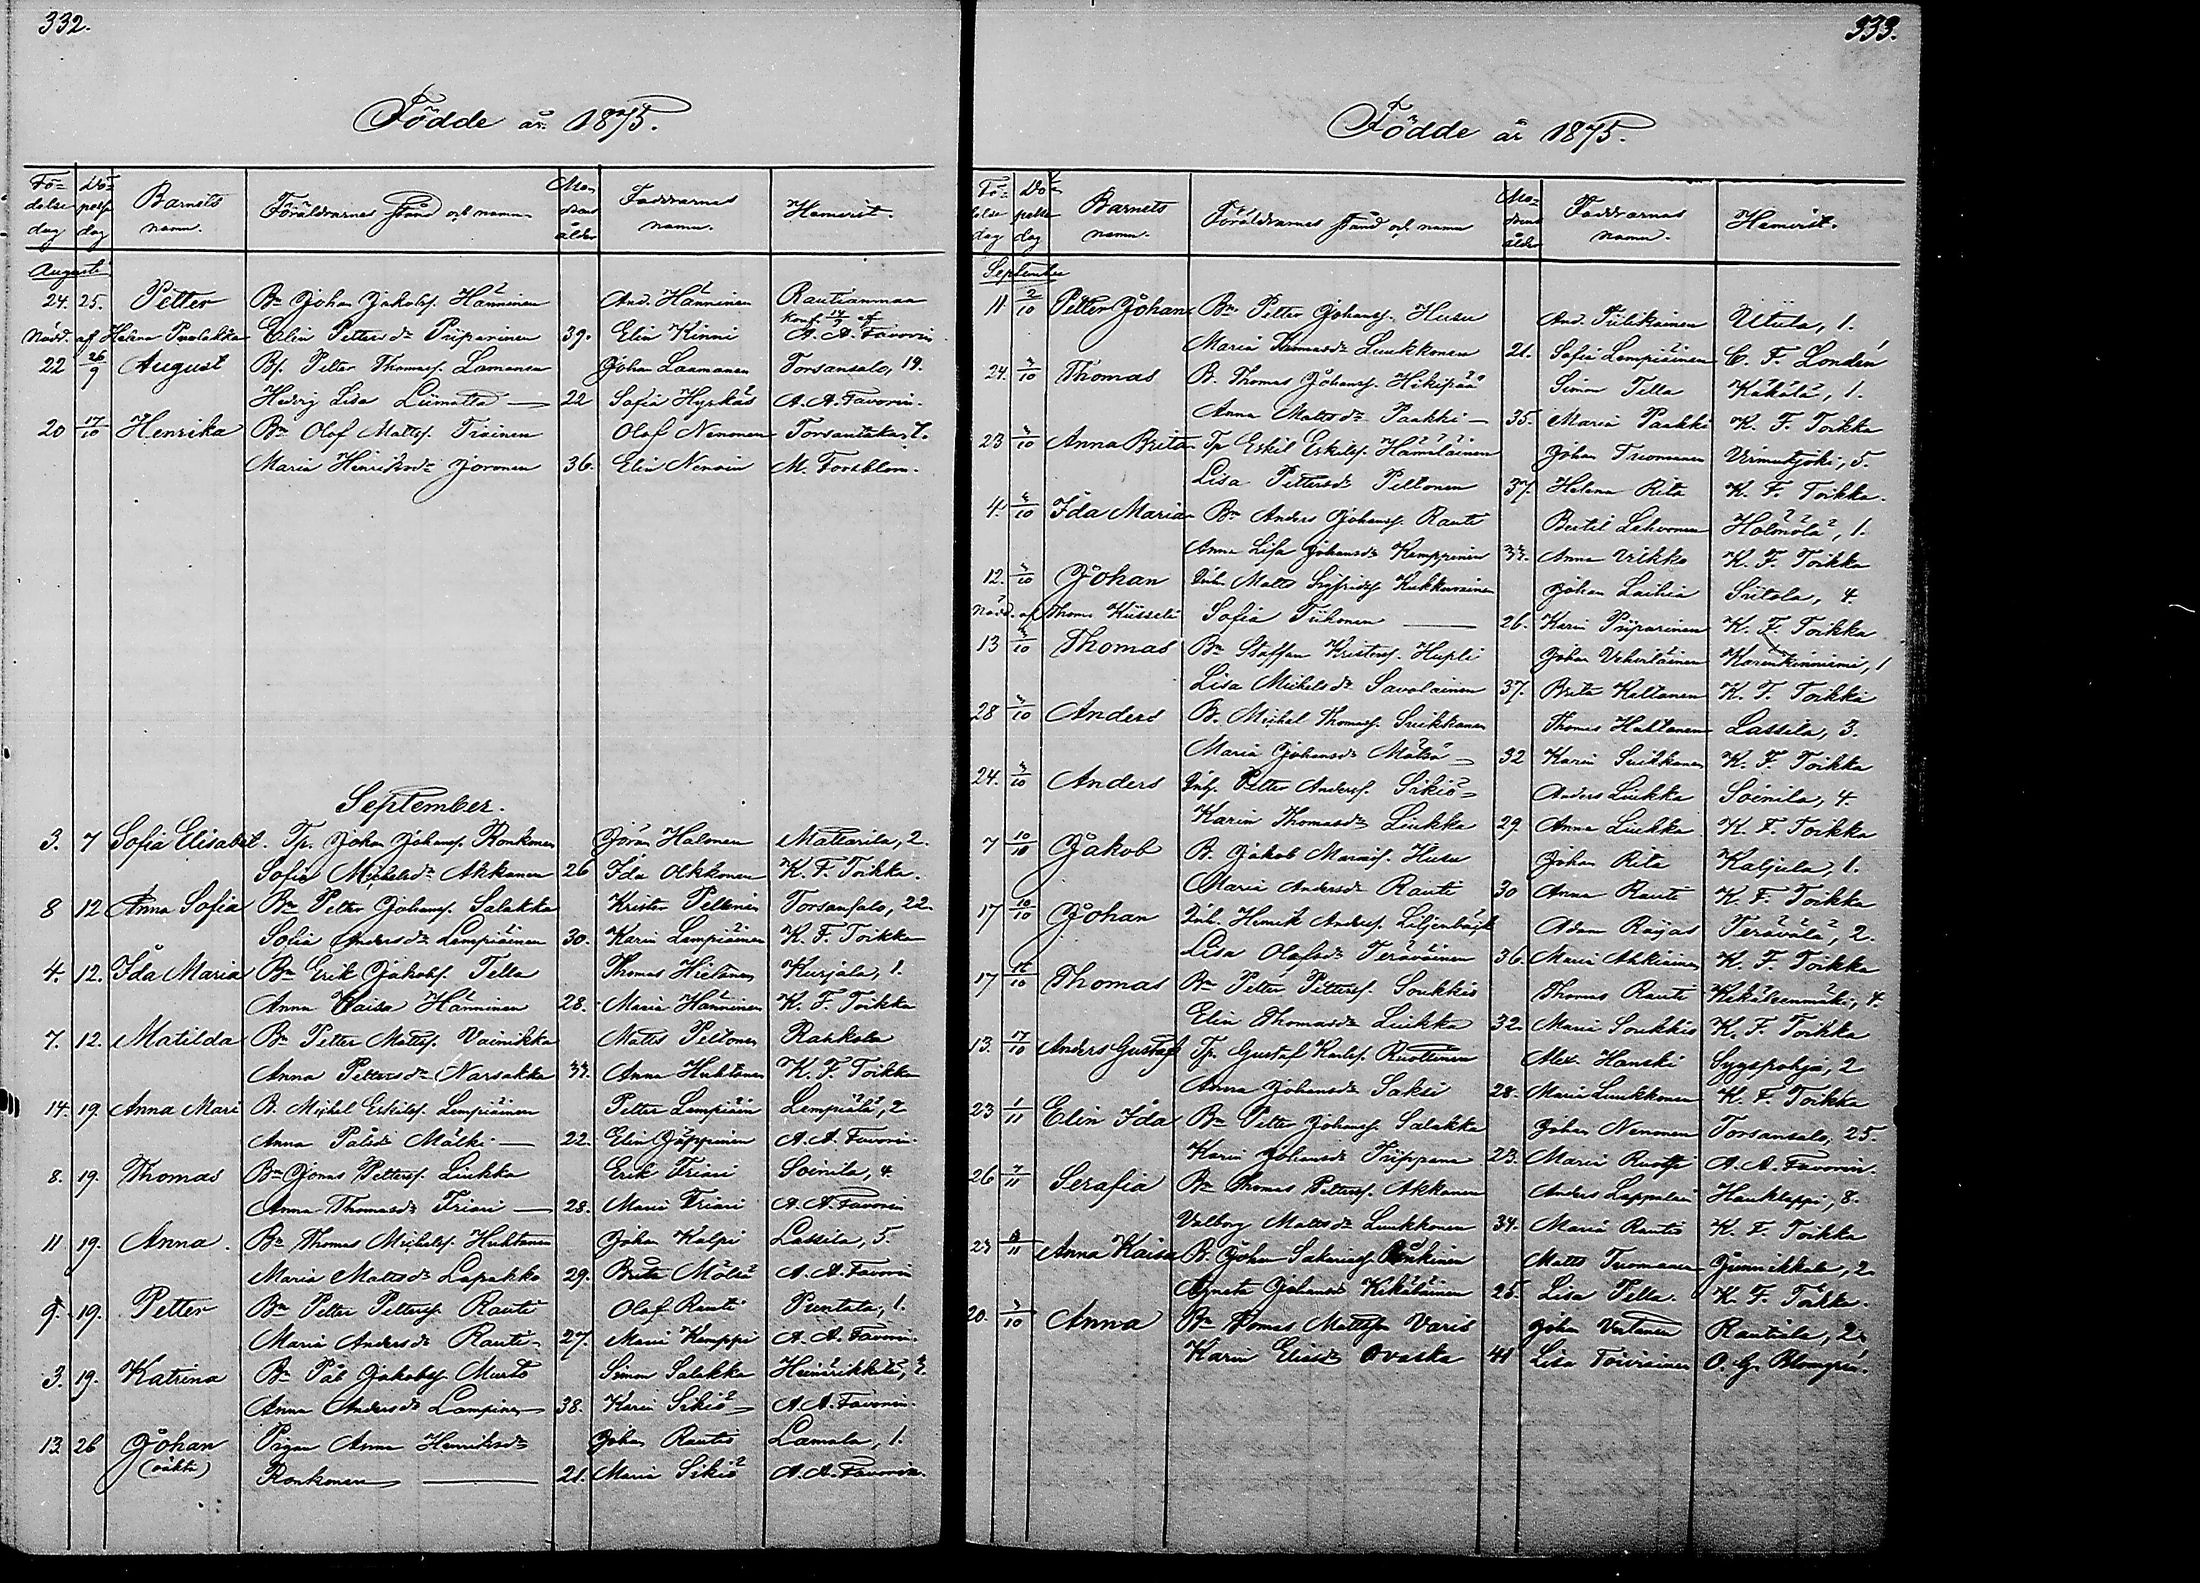 332.
Födde år 1875.
Fö- delse dag | Dö- pelse dag | Barnets namn. | Föräldrarnes stånd och namn | Mo- drens ålder | Faddrarnes namn. | Hemvist.
Augusti
24. 25. Petter Bn Johan Jakobss. Hänninen And. Hänninen Rautianmaa
Nödd. af Helena Elin Pettersdr Piiparinen 39. Elin Kinni A. A. Favorin
22 26/9 August Bs. Petter Thomass. Lamanen Johan Laamanen Torsansalo, 19.
Hedvig Lisa Liimatta — 22 Sofia Hyrkäs A. A. Favorin.
20 17/10 Henrika Bn Olof Mattss. Tiainen Olof Nenonen Torsantaka, 7.
Maria Henriksdr Joronen 36. Elin Nenoin M. Forsblom.
September.
3. 7 Sofia Elisabet. Tp. Johan Johanss. Ronkonen Jöran Halonen Mattarila, 2.
Sofia Michelsdr Akkanen 26 Ida Akkonen K. F. Toikka.
8 12 Anna Sofia Bn Petter Johanss. Salakka Krister Peltonen Torsansalo, 22.
Sofia Andersdr Lempiäinen 30. Karin Lempiäinen K. F. Toikka
4. 12. Ida Maria Bn Erik Jakobss. Tella Thomas Hietanen Kurjala, 1.
Anna Kaisa Hänninen 28. Maria Hänninen K. F. Toikka
7. 12. Matilda Bn Petter Mattss. Vainikka Matts Peltonen Raskala
Anna Pettersdr Narsakka 33. Anna Huhtanen K. F. Toikka
14. 19. Anna Mari B. Michel Eskilss. Lempiäinen Petter Lempiäin Lempiälä, 2
Anna Pålsdr Mälki — 22. Elin Jäppinen A. A. Favorin.
8. 19. Thomas Bn Jonas Petterss. Liukka Erik Friari Soinila, 4.
Anna Thomasdr Friari — 28. Maria Friari A. A. Favorin
11 19. Anna. Bn Thomas Michelss. Huhtanen Johan Kalpi Lassila, 5.
Maria Mattsdr Lapakko 29. Brita Mölsä A. A. Favorin
9. 19. Petter Bn Petter Petterss. Rauti Olof Rauti Puntala, 1.
Maria Andersdr Rauti 27. Maria Kemppi A. A. Favorin.
3. 19. Katrina Bn Pål Jakobss. Murto Simon Salakka
Anna Andersdr Lampinen 38. Karin Sikiö A. A. Favorin.
13. 26 Johan Pigan Anna Henriksdr Johan Rautio Lamala, 1.
(oäkta) Ronkonen — 21. Maria Sikiö A. A. Favorin.
333.
Födde år 1875.
Fö- delse dag | Dö- pelse dag | Barnets namn. | Föräldrarnes stånd och namn | Mo- drens ålder | Faddrarnes namn. | Hemvist.
September
11 2/10 Petter Johan Bn Petter Johanss. Husu And. Pulkkinen Utula, 1.
Maria Thomasdr Luukkonen 21. Sofia Lempiäinen C. F. Londén
24. 3/10 Thomas B. Thomas Johanss. Hikipää Simon Tella Käkälä, 1.
Anna Mattsdr Paakki — 35. Maria Paakki K. F. Toikka
23 3/10 Anna Brita Tp Eskil Eskilss. Hämäläinen Johan Tuomanen Virmutjoki, 5.
Lisa Pettersdr Peltonen 37. Helena Rita K. F. Toikka.
4. 3/10 Ida Maria Bn Anders Johanss. Rauti Bertil Lehvonen Hölmölä, 1.
Anna Lisa Johansdr Kemppinen 33. Anna Ukkko K. F. Toikka
12. 3/10 Johan Inh. Matts Sigfridss. Kukkurainen Johan Laihia Siitola, 4.
Nödd. af Thomas Küsseli Sofia Tiihonen — 26. Karin Piiparinen K. F. Toikka
13 3/10 Thomas Bn Staffan Kristerss. Hupli Johan Ukurläinen Korenkinniemi, 1
Lisa Michelsdr Savolainen 37. Brita Kaltanen K. F. Toikka
28 3/10 Anders B. Michel Thomass. Suikkanen Thomas Huhtanen Lassila, 3.
Maria Johansdr Mölsä — 32 Karin Suikkanen K. F. Toikka
24. 3/10 Anders Inh. Petter Anderss. Sikiö Anders Liukka Soinila, 4.
Karin Thomasdr Liukka 29. Anna Liukka K. F. Toikka
7 10/10 Jakob B. Jakob Husu Johan Rita Kaljula, 1.
Maria Andersdr Rauti 30 Anna Rauti K. F. Toikka
17 10/10 Johan Inh. Henrik Anderss. Liljenbäck Adam Rajas Terävälä, 2.
Lisa Olofsdr Teräväinen 36. Maria Ahkiainen K. F. Toikka
17 16/10 Thomas Bn Petter Petterss. Soukkio Thomas Rauti Kekäleenmäki, 4.
Elin Thomasdr Liukka 32. Maria Soukkio K. F. Toikka
13. 17/10 Anders Gustaf Tp. Gustaf Karlss. Ruottinen Alex. Hanski Syyspohja, 2
Anna Johansdr Saksi 28. Maria Luukkonen K. F. Toikka
23 1/11 Elin Ida Bn Petter Johanss. Salakka Johan Nenonen Torsansalo, 25.
Karin Johansdr Tiippana 23. Maria A. A. Favorin.
26 7/11 Serafia Bn Thomas Petterss. Akkanen Anders Lappalain Haukilappi, 8.
Valborg Mattsdr Luukkonen 34. Maria Rautio K. F. Toikka
23 Anna Kaisa B. Johan Sakariass. Matts Tuomanen Junnikkala, 2.
Agneta Johansdr Kekäläinen 25. Lisa Tella. K. F. Toikka.
20. 3/10 Anna Bn Tomas Mattsson Varis Johan Vertanen Rautiala, 2.
Karin Eliasdr Ovaska 41 Lisa Toiviainen O. G. Blomgren.